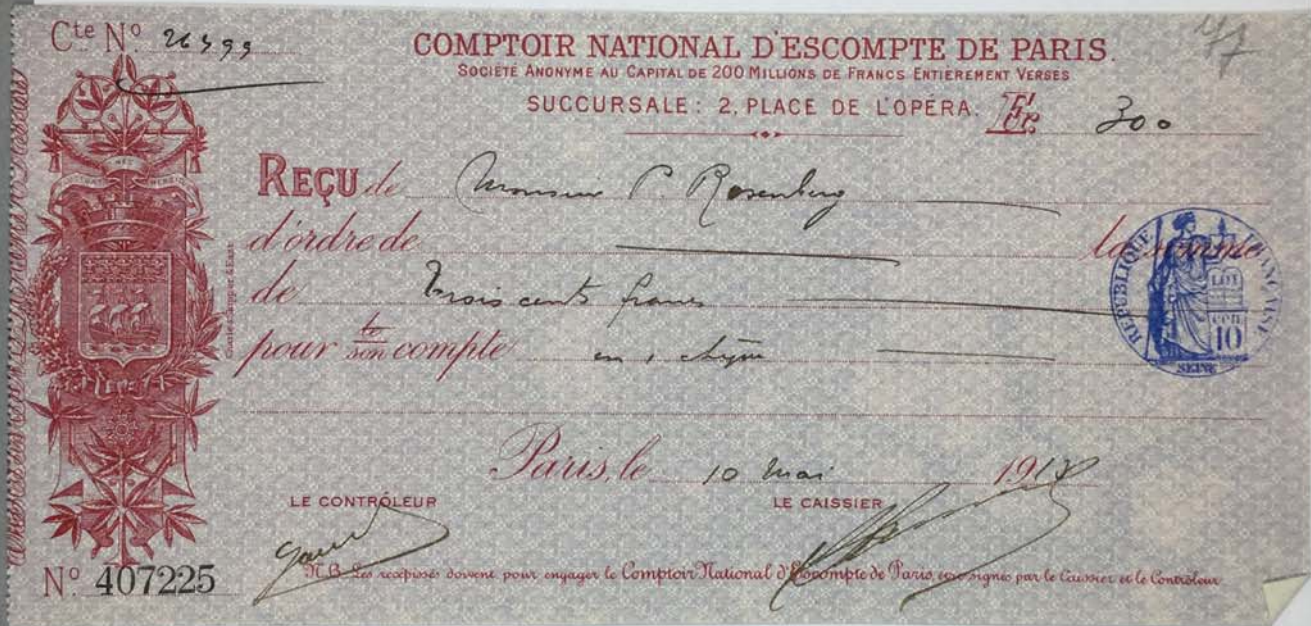 Cte No 26599
COMPTOIR NATIONAL D'ESCOMPTE DE PARIS.
SOCIÉTÉ ANONYME AU CAPITAL DE 200 MILLIONS DE FRANCS ENTIÈREMENT VERSÉS
SUCCURSALE: 2, PLACE DE L'OPÉRA. Fcs 300
REÇU de Monsieur P. Rosenberg
d'ordre de la somme
de Trois cents francs
pour le son compte en 1 chèque
RÉPUBLIQUE FRANÇAISE
LOI
10
SEINE
Paris, le 10 Mai 1918
LE CONTRÔLEUR LE CAISSIER
No 407225
N.B. Les récépissés doivent pour engager le Comptoir National d'Escompte de Paris, être signés par le Caissier et le Contrôleur